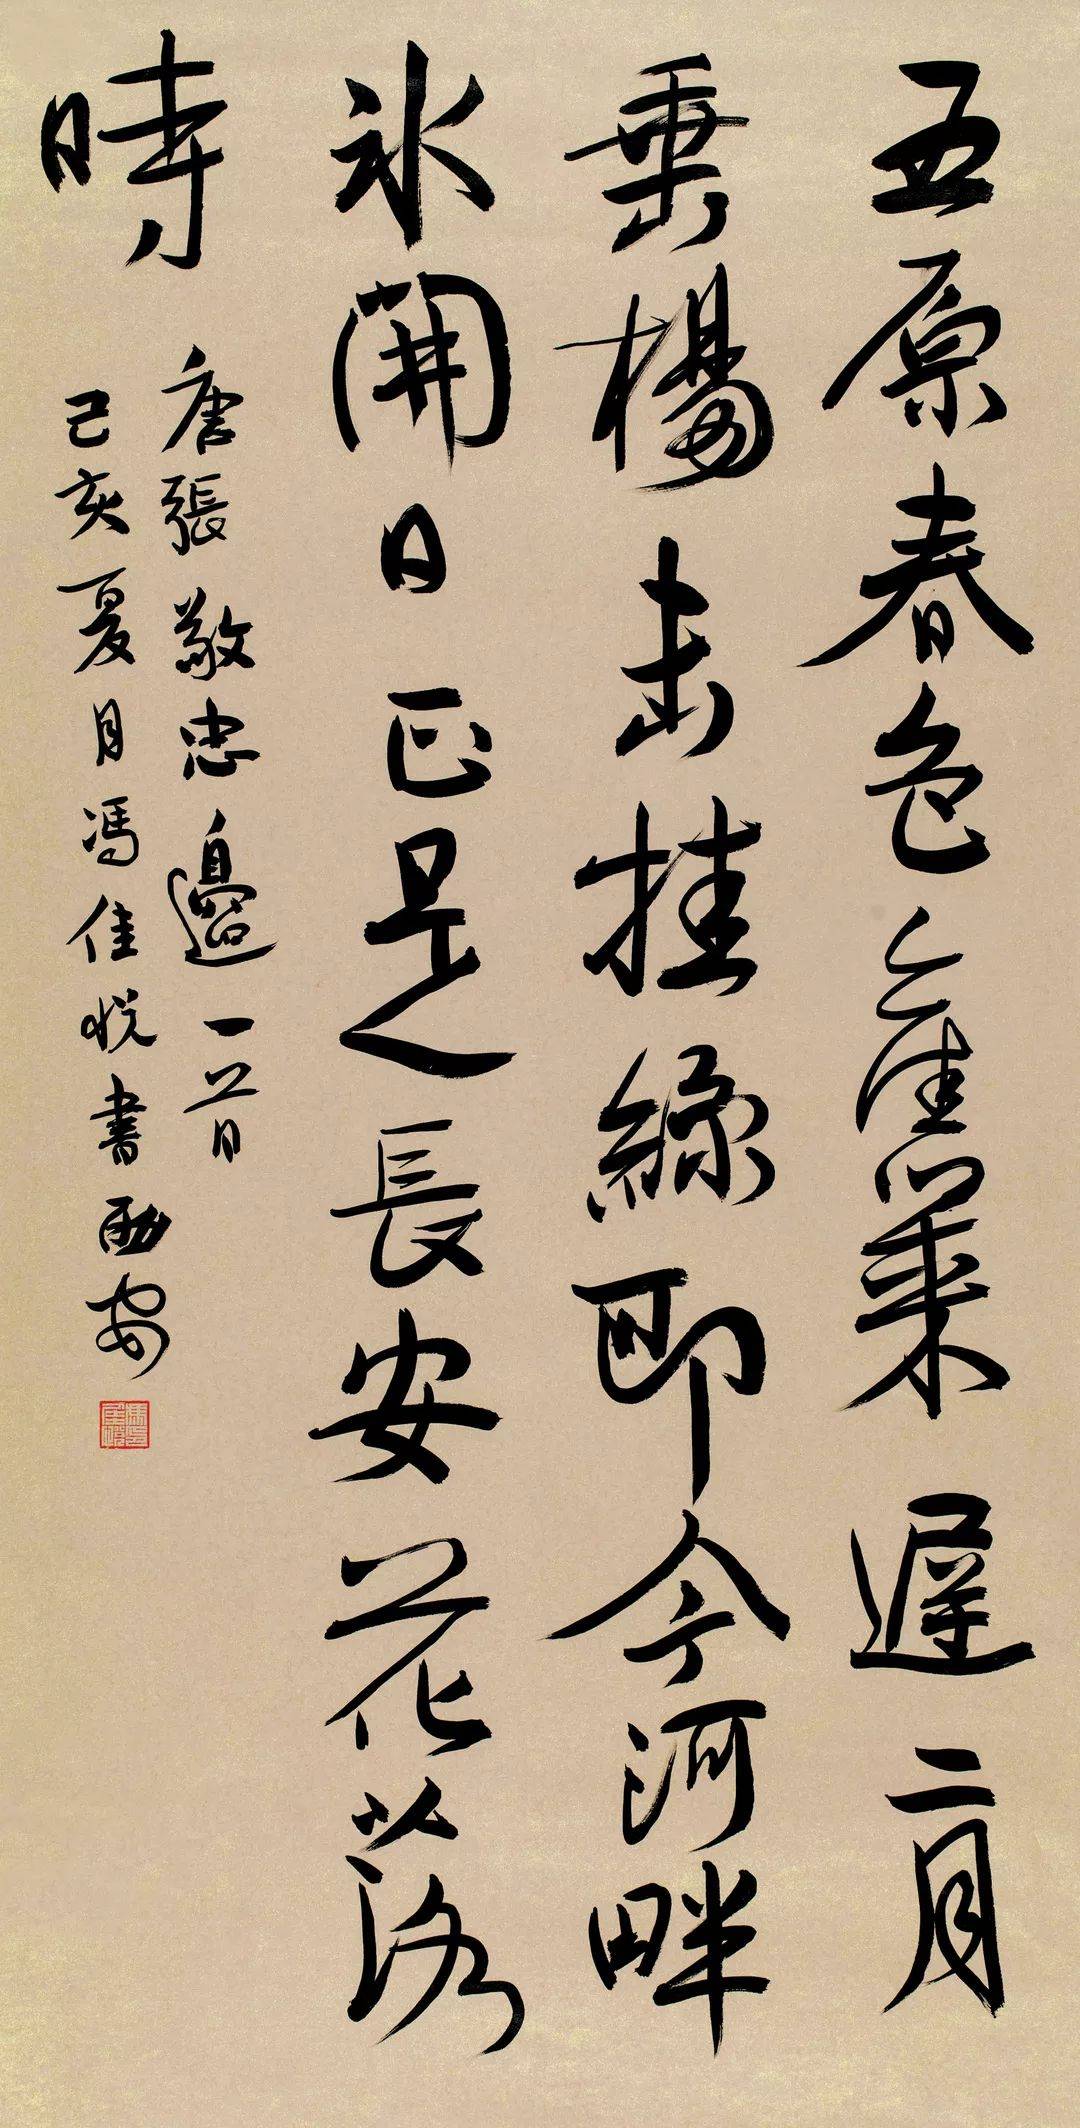 五原春色舊來遲二月
垂楊未挂絲即今河畔
冰開日正是長安花落
時
唐張敬忠邊一首
己亥夏月馮佳悦書安